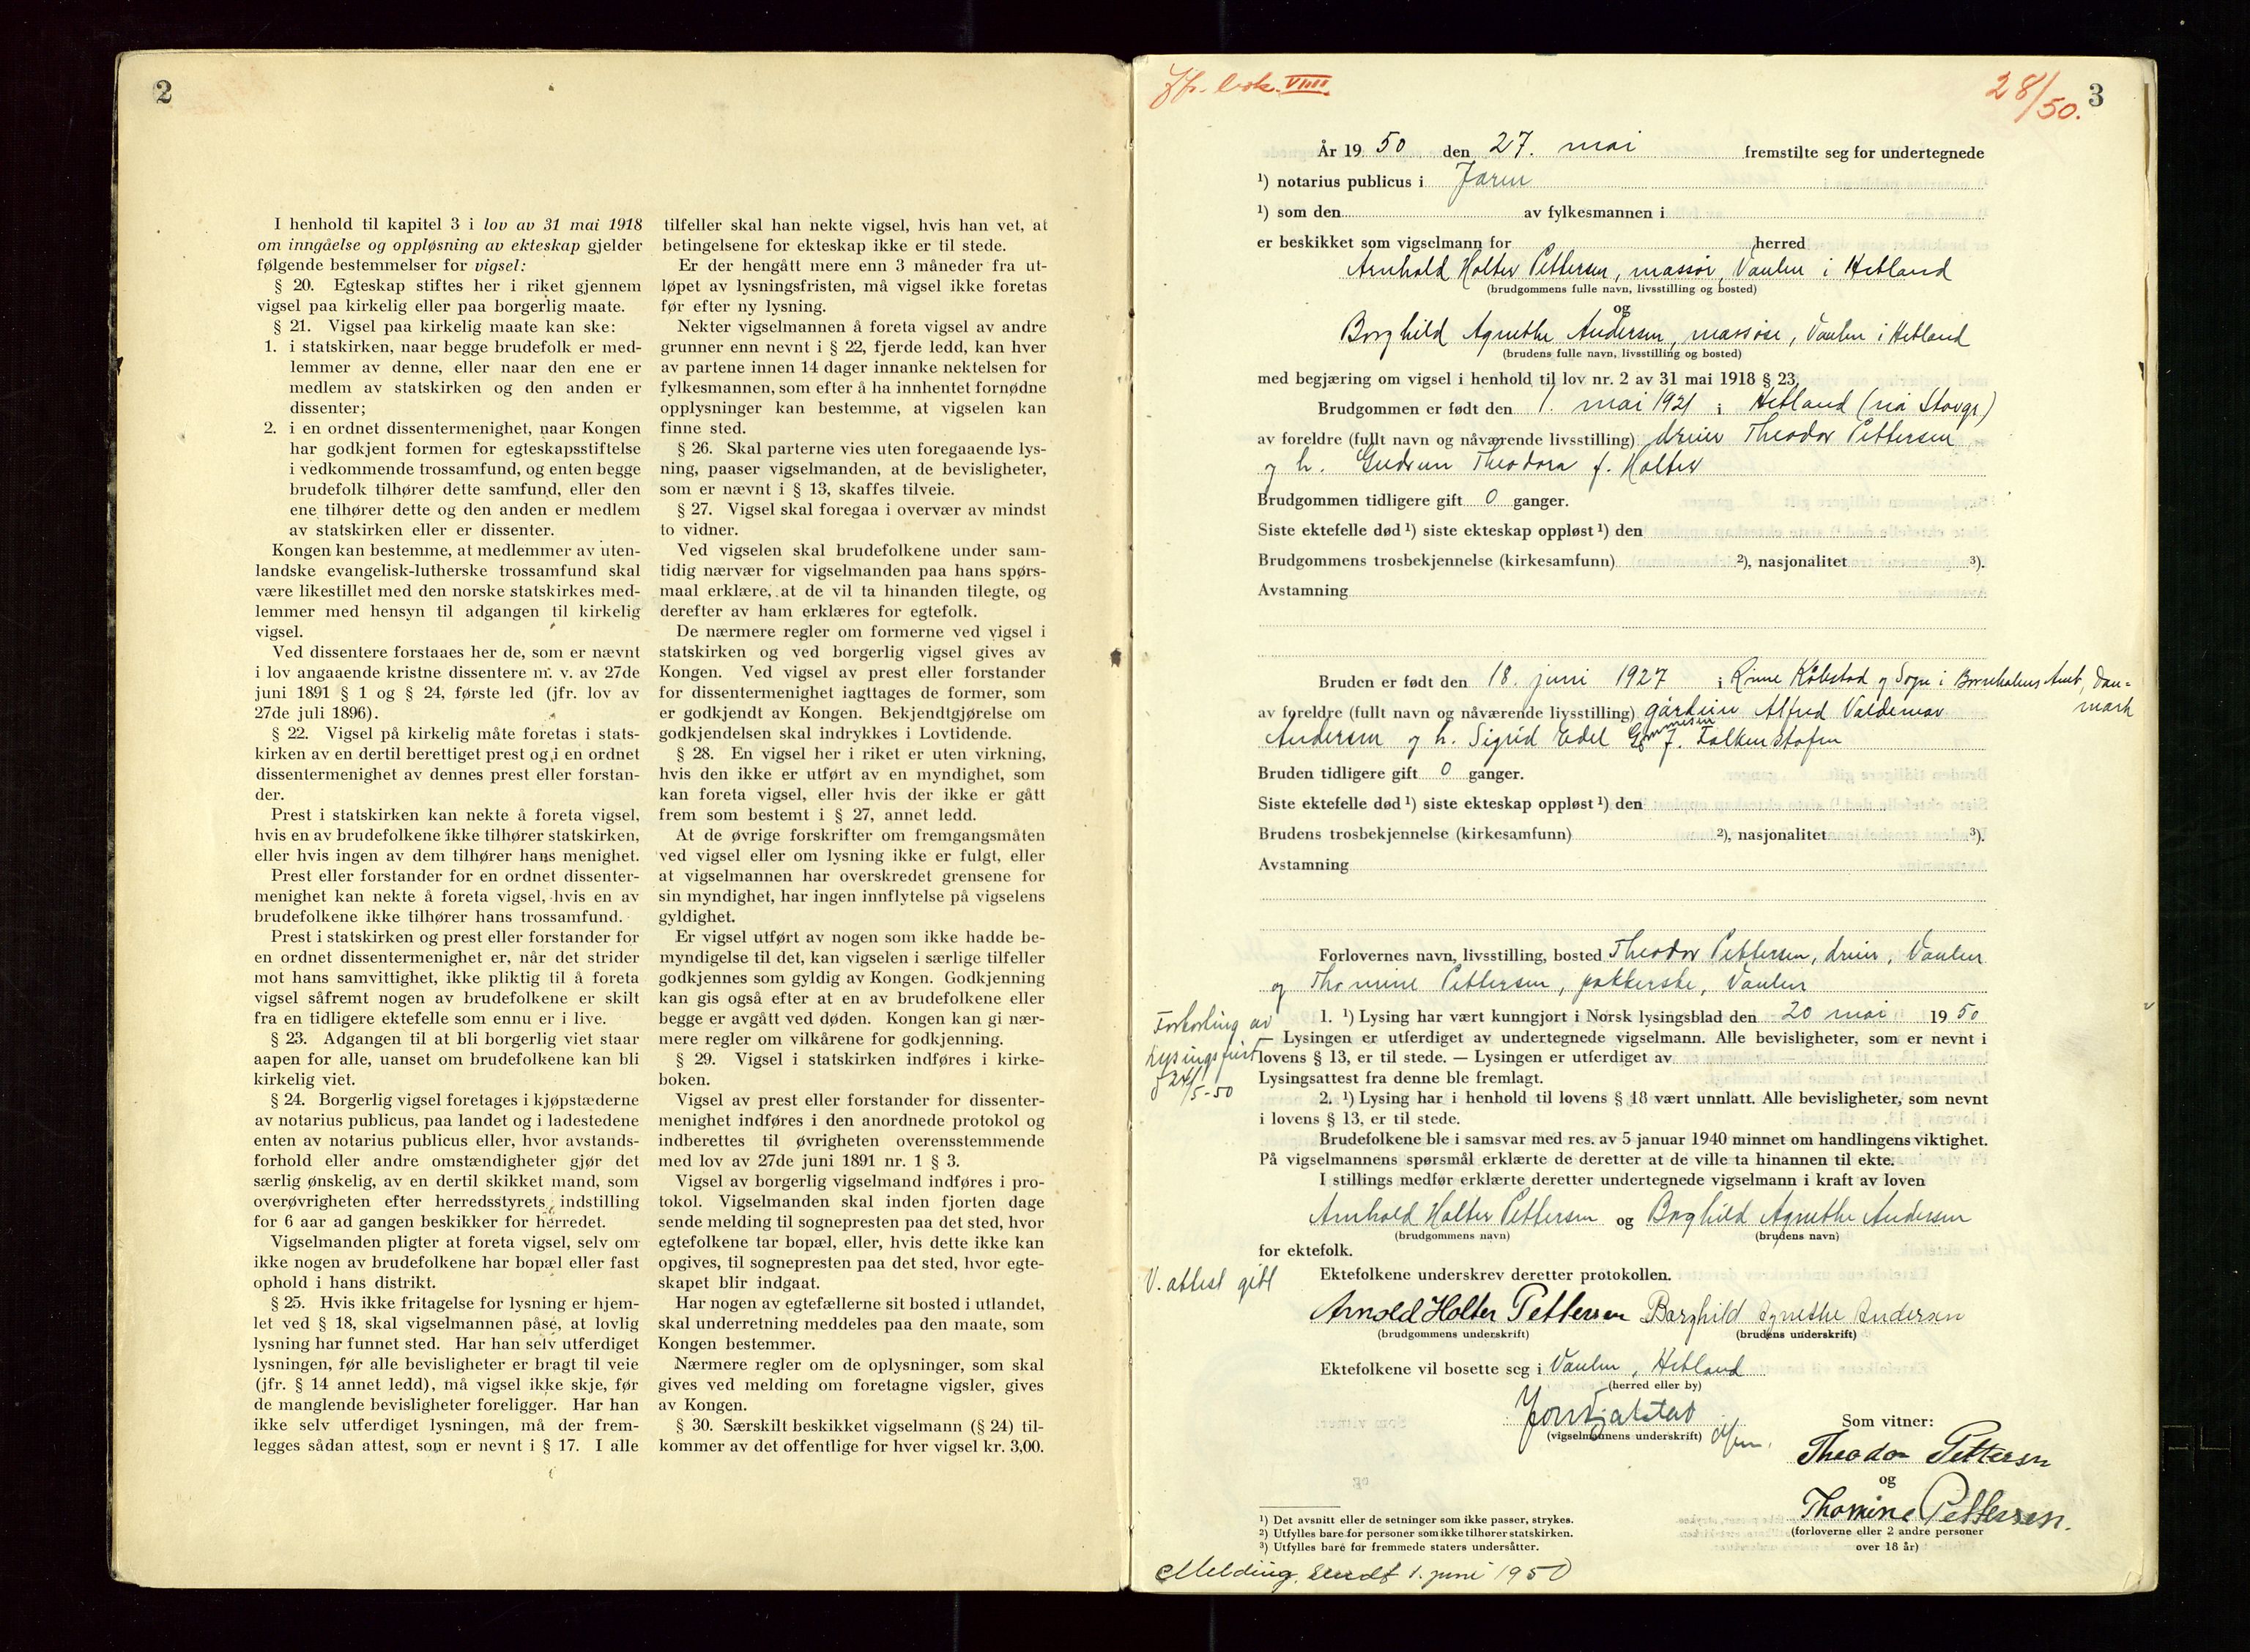 2
I henhold til kapitel 3 i lov av 31 mai 1918
om inngåelse og oppløsning av ekteskap gjelder
følgende bestemmelser for vigsel:
§ 20. Egteskap stiftes her i riket gjennem
vigsel paa kirkelig eller paa borgerlig maate.
§ 21. Vigsel paa kirkelig maate kan ske:
1. i statskirken, naar begge brudefolk er med-
lemmer av denne, eller naar den ene er
medlem av statskirken og den anden er
dissenter;
2. i en ordnet dissentermenighet, naar Kongen
har godkjent formen for egteskapsstiftelse
i vedkommende trossamfund, og enten begge
brudefolk tilhører dette samfund, eller den
ene tilhører dette og den anden er medlem
av statskirken eller er dissenter.
Kongen kan bestemme, at medlemmer av uten-
landske evangelisk-lutherske trossamfund skal
være likestillet med den norske statskirkes med-
lemmer med hensyn til adgangen til kirkelig
vigsel.
Ved dissentere forstaaes her de, som er nævnt
i lov angaaende kristne dissentere m. v. av 27de
juni 1891 § 1 og § 24, første led (jfr. lov av
27de juli 1896).
§ 22. Vigsel på kirkelig måte foretas i stats-
kirken av en dertil berettiget prest og i en ordnet
dissentermenighet av dennes prest eller forstan-
der.
Prest i statskirken kan nekte å foreta vigsel,
hvis en av brudefolkene ikke tilhører statskirken,
eller hvis ingen av dem tilhører hans menighet.
Prest eller forstander for en ordnet dissenter-
menighet kan nekte å foreta vigsel, hvis en av
brudefolkene ikke tilhører hans trossamfund.
Prest i statskirken og prest eller forstander for
en ordnet dissentermenighet er, når det strider
mot hans samvittighet, ikke pliktig til å foreta
vigsel såfremt nogen av brudefolkene er skilt
fra en tidligere ektefelle som ennu er i live.
§ 23. Adgangen til at bli borgerlig viet staar
aapen for alle, uanset om brudefolkene kan bli
kirkelig viet.
§ 24. Borgerlig vigsel foretages i kjøpstæderne
av notarius publicus, paa landet og i ladestedene
enten av notarius publicus eller, hvor avstands-
forhold eller andre omstændigheter gjør det
særlig ønskelig, av en dertil skikket mand, som
overøvrigheten efter herredsstyrets indstilling
for 6 aar ad gangen beskikker for herredet.
Vigselmanden pligter at foreta vigsel, selv om
ikke nogen av brudefolkene har bopæl eller fast
ophold i hans distrikt.
§ 25. Hvis ikke fritagelse for lysning er hjem-
let ved § 18, skal vigselmannen påse, at lovlig
lysning har funnet sted. Har han selv utferdiget
lysningen, før alle bevisligheter er bragt til veie
(jfr. § 14 annet ledd), må vigsel ikke skje, før
de manglende bevisligheter foreligger. Har han
ikke selv utferdiget lysningen, må der frem-
legges sådan attest, som er nevnt i § 17. I alle
tilfeller skal han nekte vigsel, hvis han vet, at
betingelsene for ekteskap ikke er til stede.
Er der hengått mere enn 3 måneder fra ut-
løpet av lysningsfristen, må vigsel ikke foretas
før efter ny lysning.
Nekter vigselmannen å foreta vigsel av andre
grunner enn nevnt i § 22, fjerde ledd, kan hver
av partene innen 14 dager innanke nektelsen for
fylkesmannen, som efter å ha innhentet fornødne
opplysninger kan bestemme, at vigselen kan
finne sted.
§ 26. Skal parterne vies uten foregaaende lys-
ning, paaser vigselmanden, at de bevisligheter,
som er nævnt i § 13, skaffes tilveie.
§ 27. Vigsel skal foregaa i overvær av mindst
to vidner.
Ved vigselen skal brudefolkene under sam-
tidig nærvær for vigselmanden paa hans spørs-
maal erklære, at de vil ta hinanden tilegte, og
derefter av ham erklæres for egtefolk.
De nærmere regler om formerne ved vigsel i
statskirken og ved borgerlig vigsel gives av
Kongen. Ved vigsel av prest eller forstander
for dissentermenighet iagttages de former, som
er godkjendt av Kongen. Bekjendtgjørelse om
godkjendelsen skal indrykkes i Lovtidende.
§ 28. En vigsel her i riket er uten virkning,
hvis den ikke er utført av en myndighet, som
kan foreta vigsel, eller hvis der ikke er gått
frem som bestemt i § 27, annet ledd.
At de øvrige forskrifter om fremgangsmåten
ved vigsel eller om lysning ikke er fulgt, eller
at vigselmannen har overskredet grensene for
sin myndighet, har ingen innflytelse på vigselens
gyldighet.
Er vigsel utført av nogen som ikke hadde be-
myndigelse til det, kan vigselen i særlige tilfeller
godkjennes som gyldig av Kongen. Godkjenning
kan gis også efter at en av brudefolkene eller
begge er avgått ved døden. Kongen kan gi nær-
mere regler om vilkårene for godkjenning.
§ 29. Vigsel i statskirken indføres i kirke-
boken.
Vigsel av prest eller forstander for dissenter-
menighet indføres i den anordnede protokol og
indberettes til øvrigheten overensstemmende
med lov av 27de juni 1891 nr. 1 § 3.
Vigsel av borgerlig vigselmand indføres i pro-
tokol. Vigselmanden skal inden fjorten dage
sende melding til sognepresten paa det sted, hvor
egtefolkene tar bopæl, eller, hvis dette ikke kan
opgives, til sognepresten paa det sted, hvor egte-
skapet blir indgaat.
Har nogen av egtefællerne sit bosted i utlandet,
skal underretning meddeles paa den maate, som
Kongen bestemmer.
Nærmere regler om de oplysninger, som skal
gives ved melding om foretagne vigsler, gives
av Kongen.
§ 30. Særskilt beskikket vigselmann (§ 24) til-
kommer av det offentlige for hver vigsel kr. 3,00.
Jfr. bok VIIII.
28/50. 3
År 19 50 den 27. mai fremstilte seg for undertegnede
¹) notarius publicus i Jæren
¹) som den av fylkesmannen i
er beskikket som vigselmann for herred
Arnhold Holter Pettersen, massør, Vaulen i Hetland
(brudgommens fulle navn, livsstilling og bosted)
og
Borghild Agnethe Andersen, massøse, Vaulen i Hetland
(brudens fulle navn, livsstilling og bosted)
med begjæring om vigsel i henhold til lov nr. 2 av 31 mai 1918 § 23.
Brudgommen er født den 1. mai 1921 i Hetland (nå Stavgr)
av foreldre (fullt navn og nåværende livsstilling) dreier Theodor Pettersen
og h. Gudrun Theodora f. Holter
Brudgommen tidligere gift 0 ganger.
Siste ektefelle død ¹) siste ekteskap oppløst ¹) den
Brudgommens trosbekjennelse (kirkesamfunn) ²), nasjonalitet ³).
Avstamning
Bruden er født den 18. juni 1927 i Rønne Købstad og Sogn i Bornholms Amt, Dan-
mark
av foreldre (fullt navn og nåværende livsstilling) gårdeier Alfred Valdemar
Andersen og h. Sigrid Edel f. Falkenstofen
Bruden tidligere gift 0 ganger.
Siste ektefelle død ¹) siste ekteskap oppløst ¹) den
Brudens trosbekjennelse (kirkesamfunn) ²), nasjonalitet ³).
Avstamning
Forlovernes navn, livsstilling, bosted Theodor Pettersen, dreier, Vaulen
og Thomine Pettersen, pakkerske, Vaulen
Forkorting av
lysingsfrist
f 24/5-50
1. ¹) Lysing har vært kunngjort i Norsk lysingsblad den 20 mai 19 50
— Lysingen er utferdiget av undertegnede vigselmann. Alle bevisligheter, som er nevnt i
lovens § 13, er til stede. — Lysingen er utferdiget av
Lysingsattest fra denne ble fremlagt.
2. ¹) Lysing har i henhold til lovens § 18 vært unnlatt. Alle bevisligheter, som nevnt
i lovens § 13, er til stede.
Brudefolkene ble i samsvar med res. av 5 januar 1940 minnet om handlingens viktighet.
På vigselmannens spørsmål erklærte de deretter at de ville ta hinannen til ekte.
I stillings medfør erklærte deretter undertegnede vigselmann i kraft av loven
Arnhold Holter Pettersen og Borghild Agnethe Andersen
(brudgommens navn) (brudens navn)
for ektefolk.
V. attest gitt
Ektefolkene underskrev deretter protokollen.
Arnold Holter Pettersen Borghild Agnethe Andersen
(brudgommens underskrift) (brudens underskrift)
Ektefolkene vil bosette seg i Vaulen, Hetland
(herred eller by)
(vigselmannens underskrift)
Som vitner:
Theodor Pettersen
og
Thomine Pettersen.
(forloverne eller 2 andre personer
over 18 år)
¹) Det avsnitt eller de setninger som ikke passer, strykes.
²) Utfylles bare for personer som ikke tilhører statskirken.
³) Utfylles bare for fremmede staters undersåtter.
Melding sendt 1. juni 1950